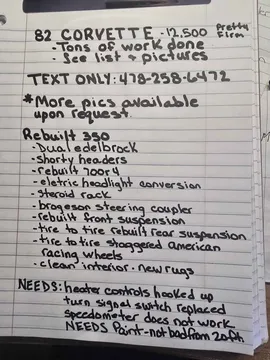 82 CORVETTE - 12,500 Pretty Firm
- Tons of work done
- See list & pictures
TEXT ONLY: 478-258-6472
*More pics available
upon request
Rebuilt 350
- Dual edelbrock
- shorty headers
- rebuilt 700r4
- eletric headlight conversion
- steroid rack
- brogeson steering coupler
- rebuilt front suspension
- tire to tire rebuilt rear suspension
- tire to tire staggered american
racing wheels
- clean interior - new rugs
NEEDS: heater controls hooked up
turn signal switch replaced
speedometer does not work
NEEDS Paint - not bad from 20ft